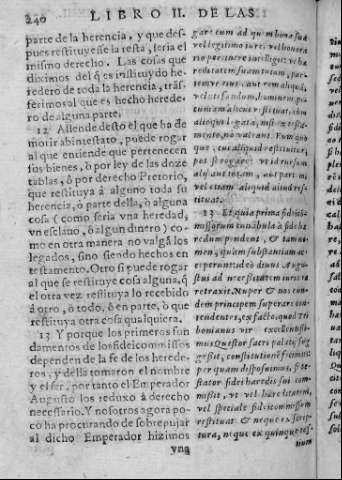 240
LIBRO II. DE LAS
parte de la herencia, y que des-
pues restituyesse la resta, seria el
mismo derecho. Las cosas que
diximos del q̃ es instituydo he-
redero de toda la herencia, trãs-
ferimos al que es hecho herede-
ro de alguna parte.
12 Allende desto el que ha de
morir abintestato, puede rogar
al que entiende que pertenecen
sus bienes, ò por ley de las doze
tablas, ò por derecho Pretorio,
que restituya à alguno toda su
herencia, ò parte della, ò alguna
cosa (como seria vna heredad,
vn esclauo, ò algun dinero) co-
mo en otra manera no valgã los
legados, sino siendo hechos en
testamento. Otro si puede rogar
al que se restituye cosa alguna, q̃
el otra vez restituya lo recebido
à otro, ò todo, ò en parte, ò que
restituya otra cosa qualquiera.
13 Y porque los primeros fun
damentos de los fideicommissos
dependen de la fe de los herede-
ros, y della tomaron el nombre
y el ser, por tanto el Emperador
Augusto los reduxo à derecho
necessario. Y nosotros agora po-
co ha procurando de sobrepujar
al dicho Emperador hizimos
vna
gare cum ad quem bona sua
vel legitimo iure, vel honora
rio pertinere intelligit: vt hæ
reditatem suam totam, par-
temve eius, aut rem aliquã,
veluti fundum, hominem, pe
cuniam alicui restituat, cum
alioqui legata, nisi ex testa-
mento, non valeant. Eum quo
que, cui aliquid restituitur,
potest rogare: vt id rursum
alij aut totum, aut partem,
vel etiam aliquid aliud rest-
tituat.
13 Et quia prima fideicõ-
missorum cunabula à fide hæ
redum pendent, & tam no-
men, quam substantiam ac-
ceperunt: ideò diuus Augu-
stus ad necessitatem iuris ea
retraxit. Nuper & nos eun-
dem principem superare con-
tendentes, ex facto, quod Tri
bonianus vir excelentissi-
mus Quæstor sacri palatij sug
gessit, constitutionẽ fecimus:
per quam disposuimus, si te-
stator fidei hæredis sui com-
misit, vt vel hæreditatem,
vel speciale fideicommissum
restituat: & neque ex scrip-
tura, neque ex quinque tes-
tium